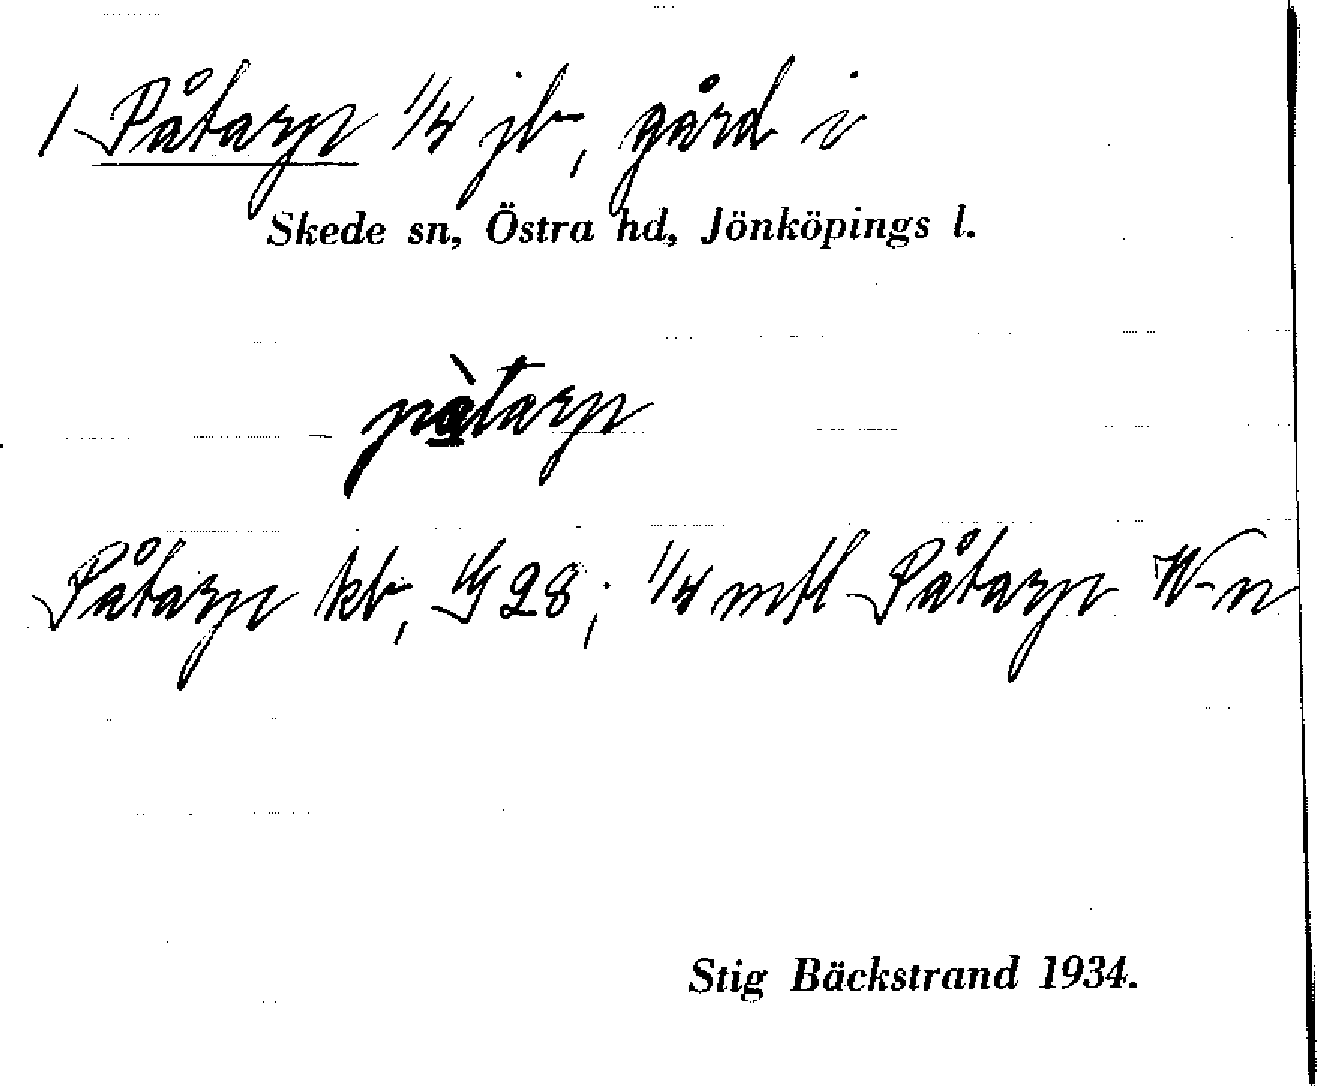 1 Påtarp 1/4 jb, gård i
Skede sn, Östra hd, Jönköpings l.
pàtarp
Påtarp kb, 28; 1/4 mtl Påtarp W-n
Stig Bäckstrand 1934.